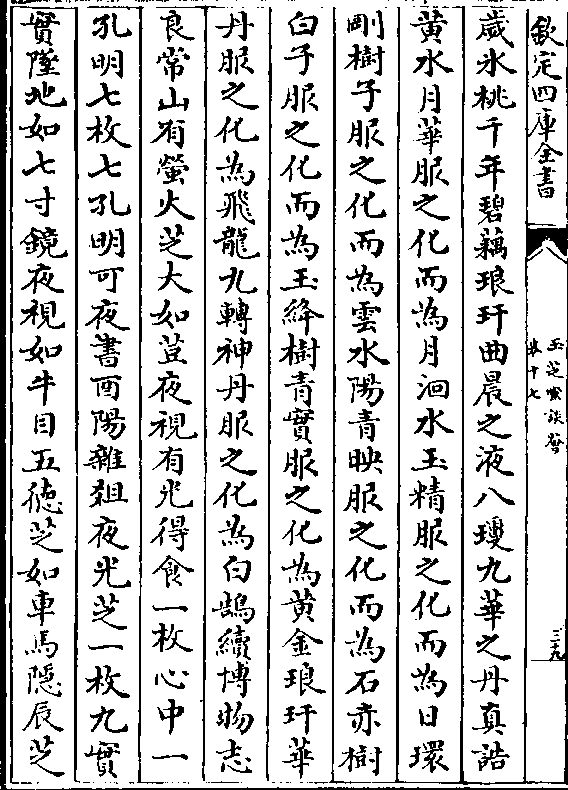 欽定四庫全書
玉芝堂談薈
卷十七
三十九
歲氷桃千年碧藕琅玕曲晨之液八瓊九華之丹真誥
黄水月華服之化而為月洄水玉精服之化而為日環
剛樹子服之化而為雲水陽青映服之化而為石赤樹
白子服之化而為玉絳樹青實服之化為黄金琅玕華
丹服之化為飛龍九轉神丹服之化為白鵠續博物志
良常山有螢火芝大如荳夜視有光得食一枚心中一
孔明七枚七孔明可夜書酉陽雜俎夜光芝一枚九實
實墜地如七寸鏡夜視如牛目五德芝如車馬隱辰芝